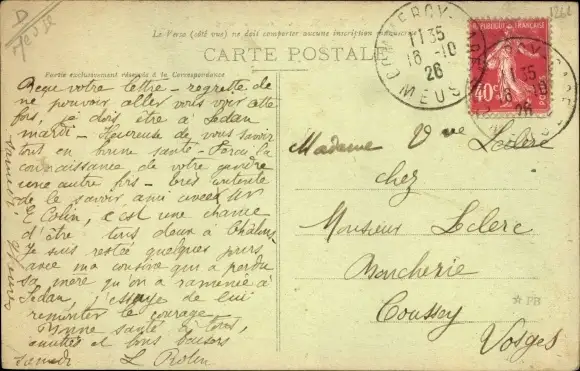 D
1262
Le Verso (côté vue) ne doit comporter aucune inscription manuscrite
CARTE POSTALE
Partie exclusivement réservée à la Correspondance
COMMERCY
11 35
16 - 10
26
MEUSE
REPUBLIQUE FRANÇAISE
40c
35
26
Reçu votre lettre - regrette de
ne pouvoir aller vous voir cette
fois, je dois être à Sedan
mardi - Heureuse de vous savoir
tous en bonne santé - Ferai la
connaissance de votre gendre
une autre fois - très contente
de le savoir ami avec Mr
E Colin, c'est une chance
d'être tous deux à Châlons
Je suis restée quelques jours
avec ma cousine qui a perdu
sa mère qu'on a ramenée à
Sedan, j'essaye de lui
remonter le courage
Bonne santé à tous,
amitiés et bons baisers
samedi L Rolin
samedi
Madame Vve Leclerc
chez
Monsieur Leclerc
Boucherie
Coussey
Vosges
PB